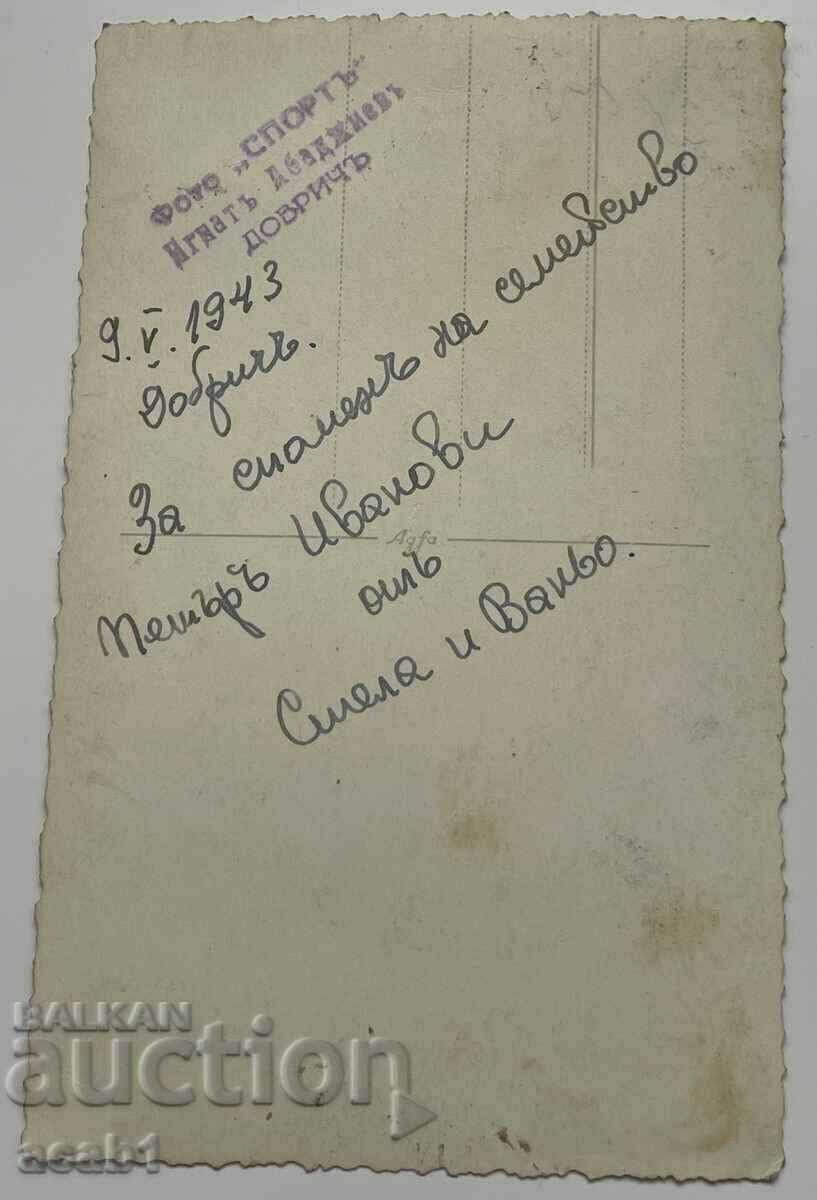 Фото „СПОРТЪ“
Игнатъ Абаджиевъ
ДОБРИЧЪ
9.V.1943
Добричъ.
За споменъ на семейство
Петъръ Иванови
отъ
Стела и Ваньо.
Agfa
BALKAN
auction
acab1